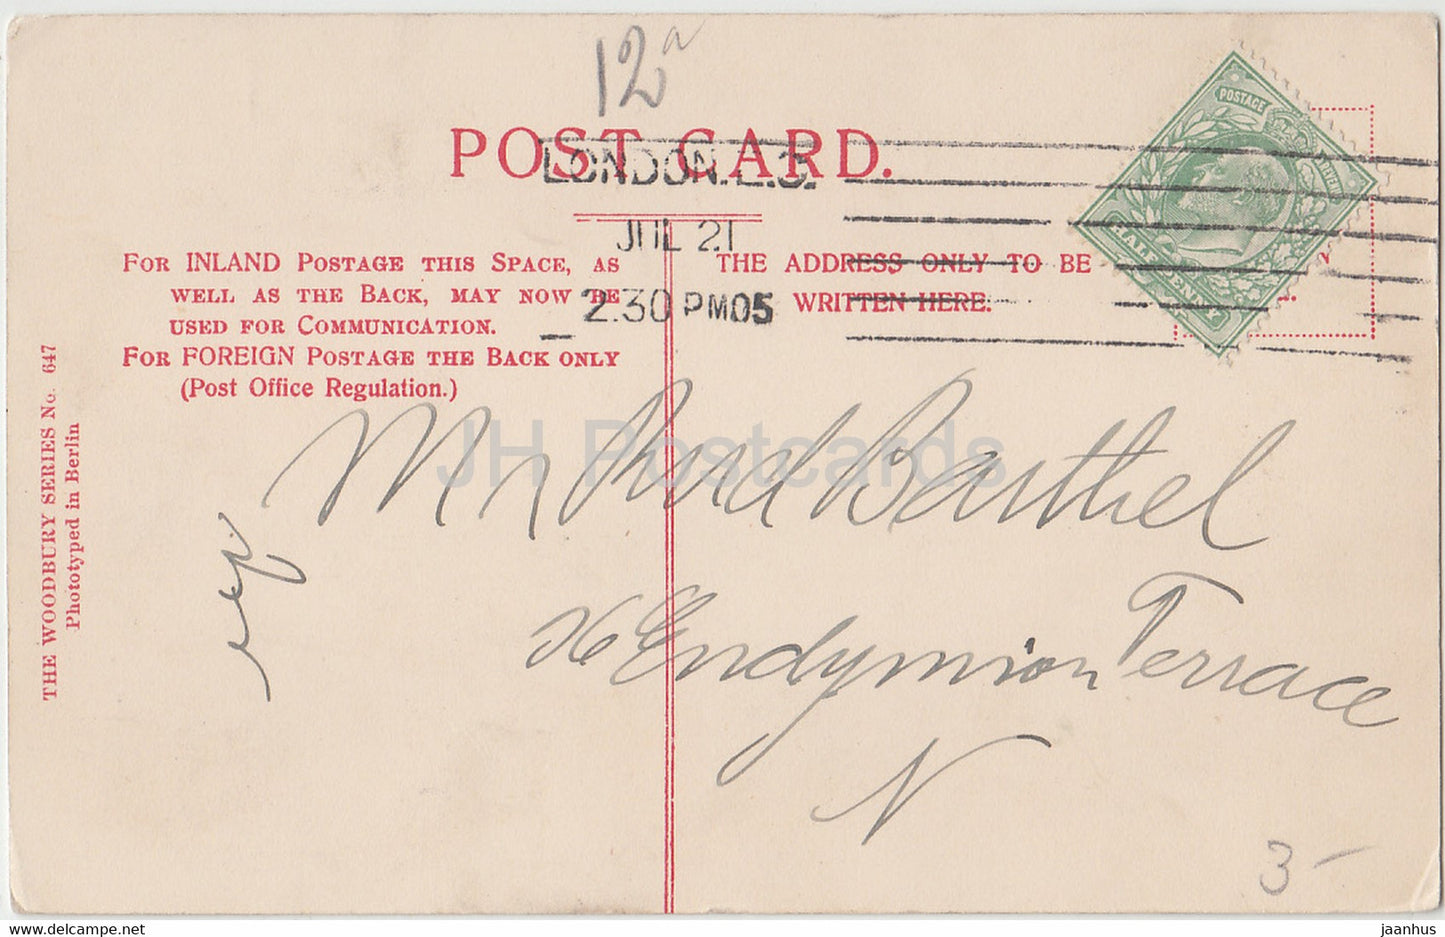 12
POST CARD.
LONDON. E.C.
JUL 21
2.30 PM 05
POSTAGE
HALFPENNY
FOR INLAND POSTAGE THIS SPACE, AS
WELL AS THE BACK, MAY NOW BE
USED FOR COMMUNICATION.
FOR FOREIGN POSTAGE THE BACK ONLY
(Post Office Regulation.)
THE ADDRESS ONLY TO BE
WRITTEN HERE.
THE WOODBURY SERIES No. 647
Phototyped in Berlin
Mr Barthel
26 Endymion Terrace
N
3-
JH Postcards
delcampe.net
jaanhus